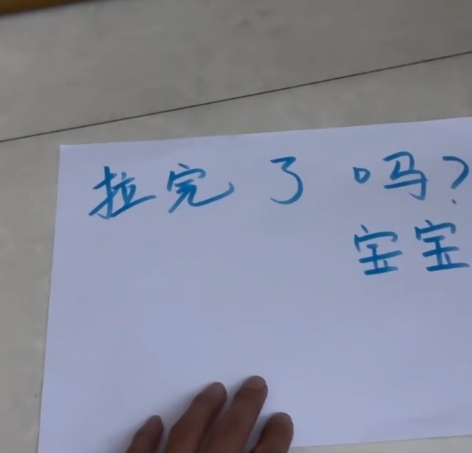 拉完了吗?
宝宝